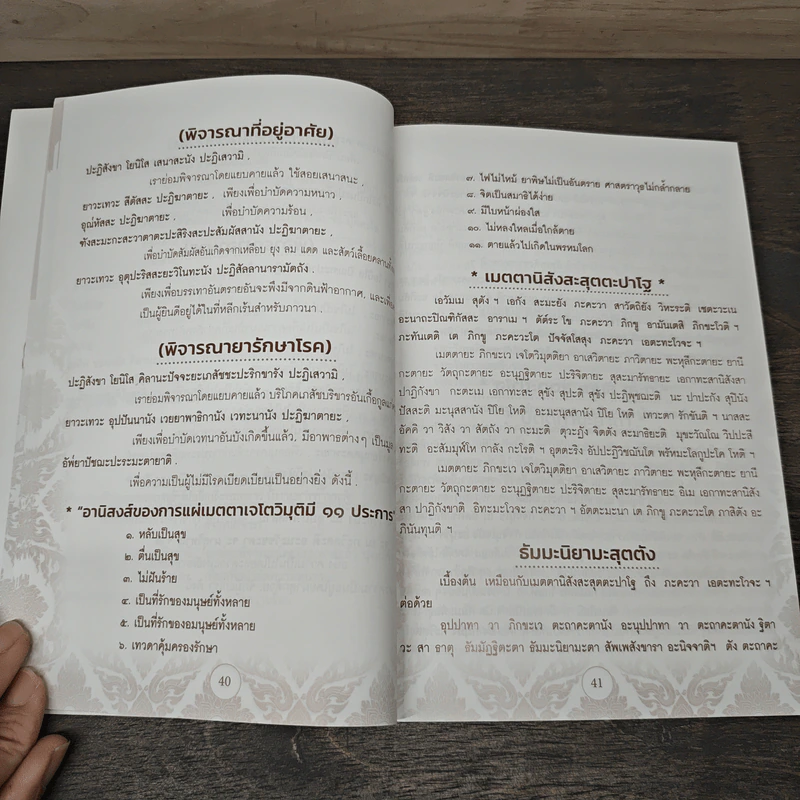 (พิจารณาที่อยู่อาศัย)
ปะฏิสังขา โยนิโส เสนาสะนัง ปะฏิเสวามิ ,
เราย่อมพิจารณาโดยแยบคายแล้ว ใช้สอยเสนาสนะ ,
ยาวะเทวะ สีตัสสะ ปะฏิฆาตายะ , เพียงเพื่อบำบัดความหนาว ,
อุณ๎หัสสะ ปะฏิฆาตายะ , เพื่อบำบัดความร้อน ,
ฑังสะมะกะสะวาตาตะปะสิริงสะปะสัมผัสสานัง ปะฏิฆาตายะ ,
เพื่อบำบัดสัมผัสอันเกิดจากเหลือบ ยุง ลม แดด และสัตว์เลื้อยคลาน
ยาวะเทวะ อุตุปะริสสะยะวิโนทะนัง ปะฏิสัลลานารามัตถัง ,
เพียงเพื่อบรรเทาอันตรายอันจะพึงมีจากดินฟ้าอากาศ, และเพื่อ
เป็นผู้ยินดีอยู่ได้ในที่หลีกเร้นสำหรับภาวนา .
(พิจารณายารักษาโรค)
ปะฏิสังขา โยนิโส คิลานะปัจจะยะเภสัชชะปะริกขารัง ปะฏิเสวามิ ,
เราย่อมพิจารณาโดยแยบคายแล้ว บริโภคเภสัชบริขารอันเกื้อกูลแก่
ยาวะเทวะ อุปปันนานัง เวยยาพาธิกานัง เวทะนานัง ปะฏิฆาตายะ ,
เพียงเพื่อบำบัดเวทนาอันบังเกิดขึ้นแล้ว, มีอาพาธต่างๆ เป็นมูล
อัพ๎ยาปัชฌะปะระมะตายาติ .
เพื่อความเป็นผู้ไม่มีโรคเบียดเบียนเป็นอย่างยิ่ง ดังนี้ .
* "อานิสงส์ของการแผ่เมตตาเจโตวิมุติมี ๑๑ ประการ"
๑. หลับเป็นสุข
๒. ตื่นเป็นสุข
๓. ไม่ฝันร้าย
๔. เป็นที่รักของมนุษย์ทั้งหลาย
๕. เป็นที่รักของอมนุษย์ทั้งหลาย
๖. เทวดาคุ้มครองรักษา
40
๗. ไฟไม่ไหม้ ยาพิษไม่เป็นอันตราย ศาสตราวุธไม่กล้ำกลาย
๘. จิตเป็นสมาธิได้ง่าย
๙. มีใบหน้าผ่องใส
๑๐. ไม่หลงใหลเมื่อใกล้ตาย
๑๑. ตายแล้วไปเกิดในพรหมโลก
* เมตตานิสังสะสุตตะปาโฐ *
เอวัมเม สุตัง ฯ เอกัง สะมะยัง ภะคะวา สาวัตถิยัง วิหะระติ เชตะวะเน
อะนาถะปิณฑิกัสสะ อาราเม ฯ ตัต๎ระ โข ภะคะวา ภิกขู อามันเตสิ ภิกขะโวติ ฯ
ภะทันเตติ เต ภิกขู ภะคะวะโต ปัจจัสโสสุง ภะคะวา เอตะทะโวจะ ฯ
เมตตายะ ภิกขะเว เจโตวิมุตติยา อาเสวิตายะ ภาวิตายะ พะหุลีกะตายะ ยานี
กะตายะ วัตถุกะตายะ อะนุฏฐิตายะ ปะริจิตายะ สุสะมารัทธายะ เอกาทะสานิสังสา
ปาฏิกังขา กะตะเม เอกาทะสะ สุขัง สุปะติ สุขัง ปะฏิพุชฌะติ นะ ปาปะกัง สุปินัง
ปัสสะติ มะนุสสานัง ปิโย โหติ อะมะนุสสานัง ปิโย โหติ เทวะตา รักขันติ ฯ นาสสะ
อัคคิ วา วิสัง วา สัตถัง วา กะมะติ ตุวะฏัง จิตตัง สะมาธิยะติ มุขะวัณโณ วิปปะสี
ทะติ อะสัมมุฬ๎โห กาลัง กะโรติ ฯ อุตตะริง อัปปะฏิวิชฌันโต พรัหมะโลกูปะโค โหติ ฯ
เมตตายะ ภิกขะเว เจโตวิมุตติยา อาเสวิตายะ ภาวิตายะ พะหุลีกะตายะ ยานี
กะตายะ วัตถุกะตายะ อะนุฏฐิตายะ ปะริจิตายะ สุสะมารัทธายะ อิเม เอกาทะสานิสัง
สา ปาฏิกังขาติ อิทะมะโวจะ ภะคะวา ฯ อัตตะมะนา เต ภิกขู ภะคะวะโต ภาสิตัง อะ
ภินันทุนติ ฯ
ธัมมะนิยามะสุตตัง
เบื้องต้น เหมือนกับเมตตานิสังสะสุตตะปาโฐ ถึง ภะคะวา เอตะทะโวจะ ฯ
ต่อด้วย
อุปปาทา วา ภิกขะเว ตะถาคะตานัง อะนุปปาทา วา ตะถาคะตานัง ฐิตา
วะ สา ธาตุ ธัมมัฏฐิตะตา ธัมมะนิยามะตา สัพเพสังขารา อะนิจจาติฯ ตัง ตะถาคะ
41